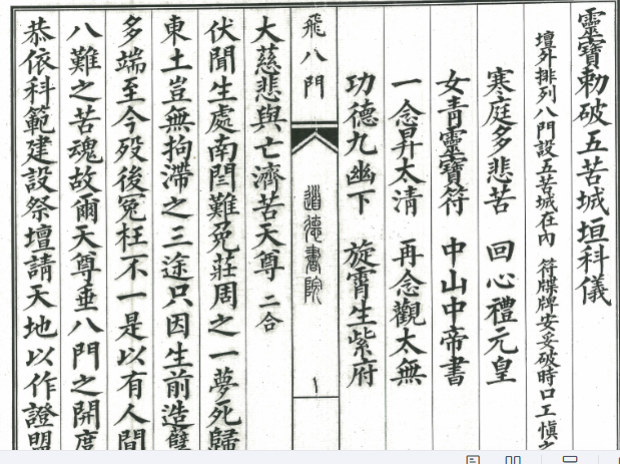 靈寶勅破五苦城垣科儀
壇外排列八門設五苦城在內 符牒牌安妥破時口工慎之
寒庭多悲苦 回心禮元皇
女青靈寶符 中山中帝書
一念昇太清 再念觀太無
功德九幽下 旋霄生紫府
飛八門 道德書院 一
大慈悲與亡濟苦天尊 二合
伏聞生處南閻難免莊周之一夢死歸
東土豈無拘滯之三途只因生前造孽
多端至今歿後冤枉不一是以有人間
八難之苦魂故爾天尊垂八門之開度
恭依科範建設祭壇請天地以作證盟